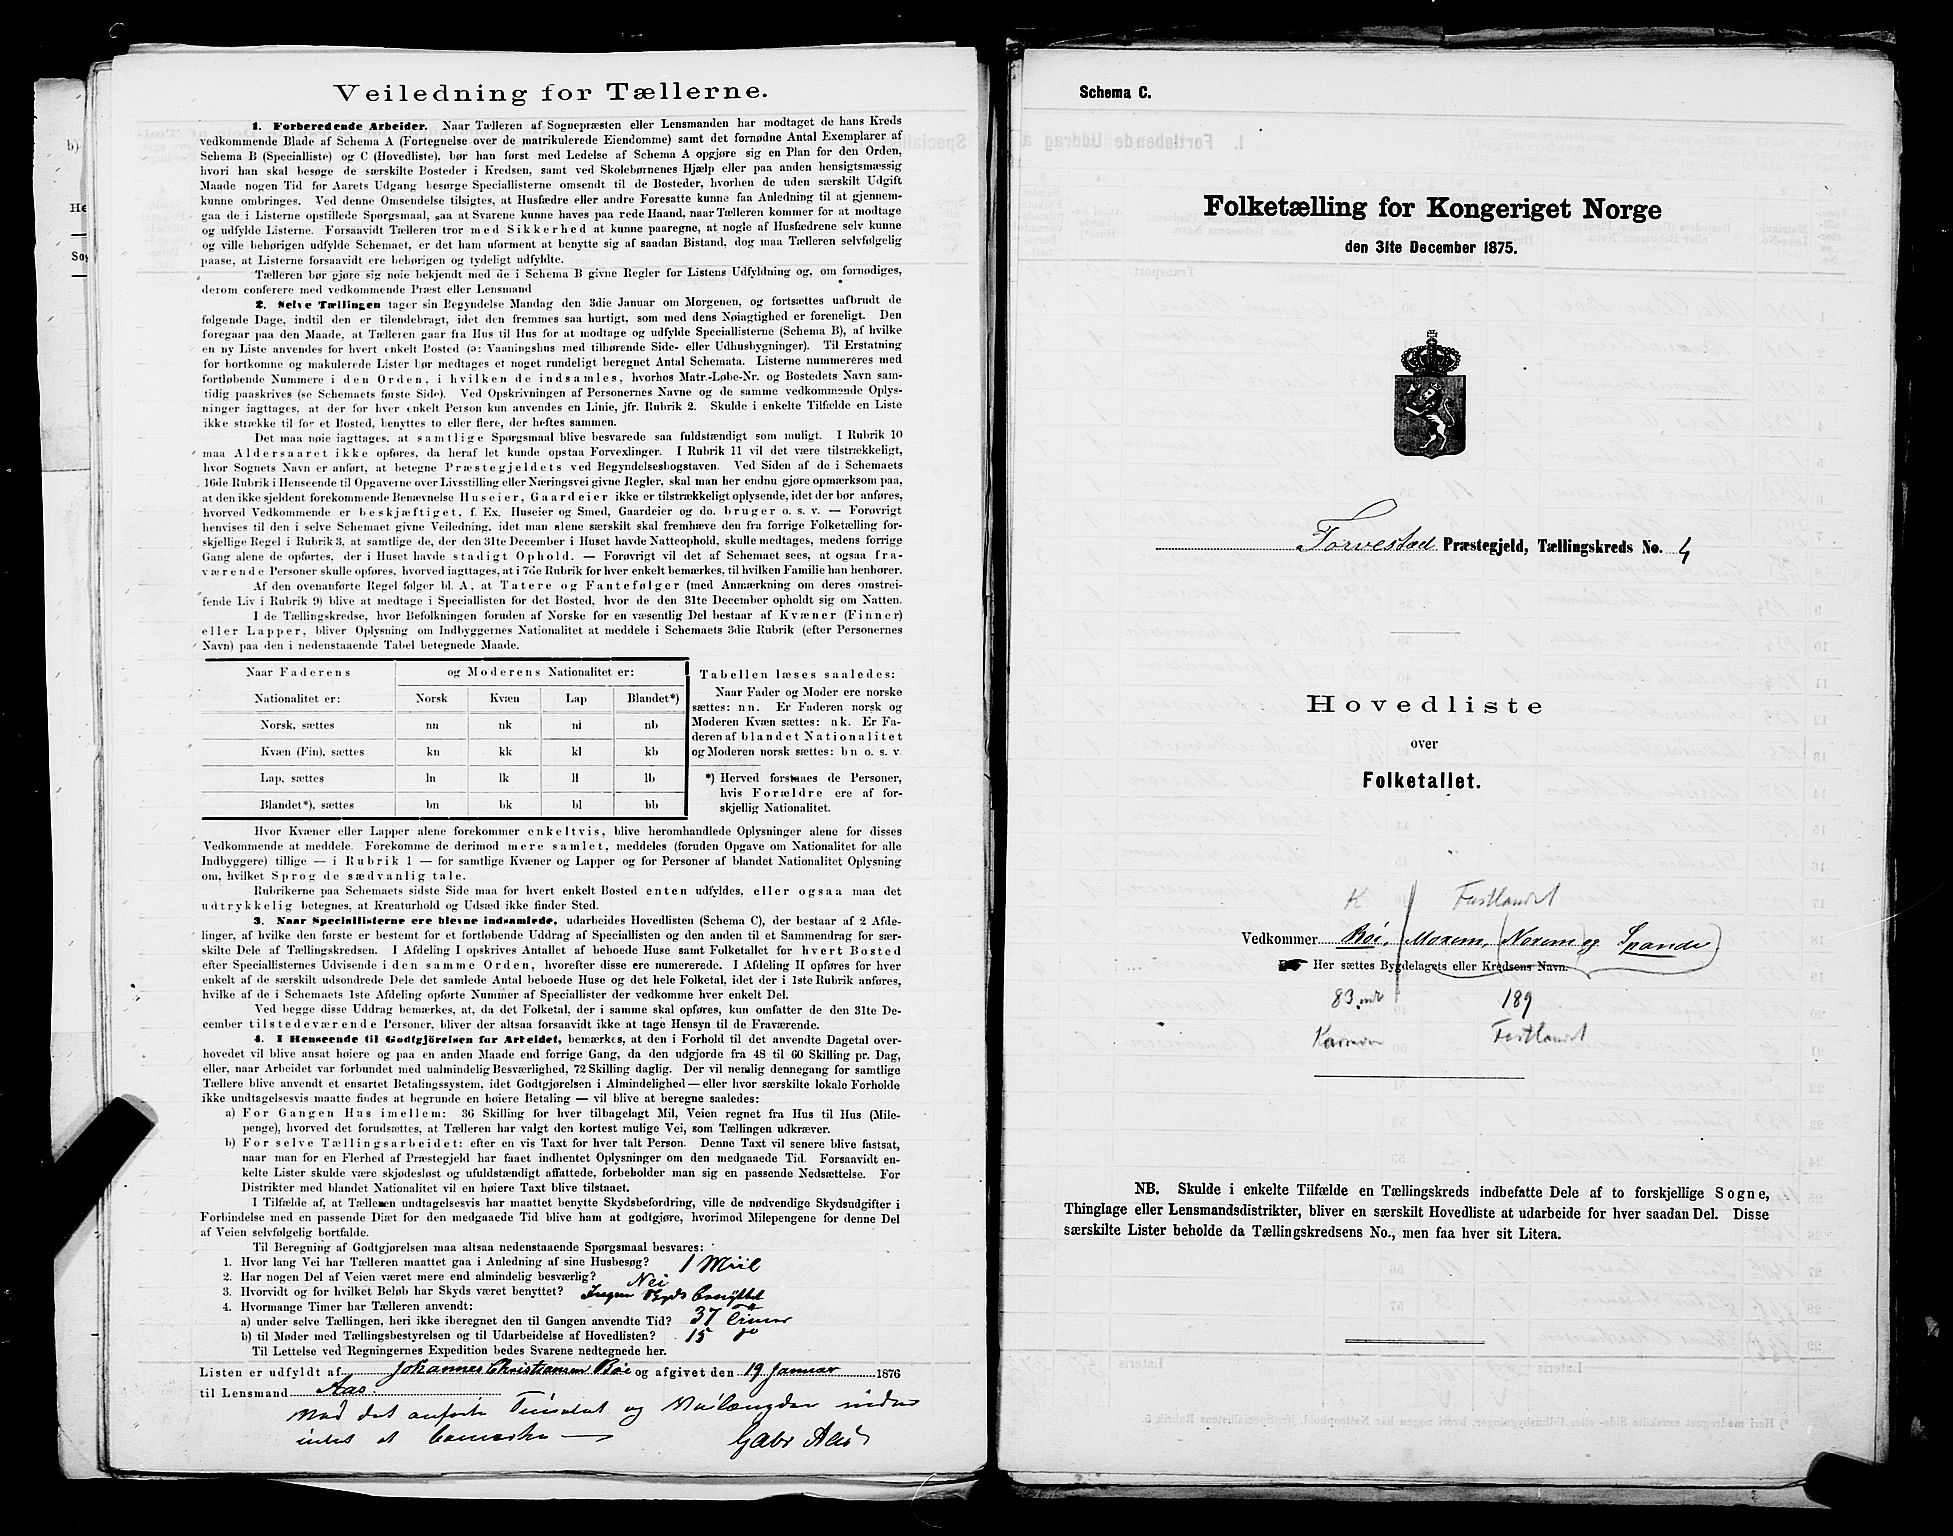 Veiledning for Tællerne.
1. Forberedende Arbeider. Naar Tælleren af Sognepræsten eller Lensmanden har modtaget de hans Kreds
vedkommende Blade af Schema A (Fortegnelse over de matrikulerede Eiendomme) samt det fornødne Antal Exemplarer af
Schema B (Specialliste) og C (Hovedliste), bør han først med Ledelse af Schema A opgjøre sig en Plan for den Orden,
hvori han skal besøge de særskilte Bosteder i Kredsen, samt ved Skolebørnenes Hjælp eller paa anden hensigtsmæssig
Maade nogen Tid før Aarets Udgang besørge Speciallisterne omsendt til de Bosteder, hvorhen de uden særskilt Udgift
kunne ombringes. Ved denne Omsendelse tilsigtes, at Husfædre eller andre Foresatte kunne faa Anledning til at gjennem-
gaa de i Listerne opstillede Spørgsmaal, saa at Svarene kunne haves paa rede Haand, naar Tælleren kommer for at modtage
og udfylde Listerne. Forsaavidt Tælleren tror med Sikkerhed at kunne paaregne, at nogle af Husfædrene selv kunne
og ville behørigen udfylde Schemaet, er det ham uforment at benytte sig af saadan Bistand, dog maa Tælleren selvfølgelig
paase, at Listerne forsaavidt ere behørigen og tydeligt udfyldte.
Tælleren bør gjøre sig nøie bekjendt med de i Schema B givne Regler for Listens Udfyldning og, om fornødiges,
derom conferere med vedkommende Præst eller Lensmand
2. Selve Tællingen tager sin Begyndelse Mandag den 3die Januar om Morgenen, og fortsættes uafbrudt de
følgende Dage, indtil den er tilendebragt, idet den fremmes saa hurtigt, som med dens Nøiagtighed er foreneligt. Den
foregaar paa den Maade, at Tælleren gaar fra Hus til Hus for at modtage og udfylde Speciallisterne (Schema B), af hvilke
en ny Liste anvendes for hvert enkelt Bosted (ɔ: Vaaningshus med tilhørende Side- eller Udhusbygninger). Til Erstatning
for bortkomne og makulerede Lister bør medtages et noget rundeligt beregnet Antal Schemata. Listerne nummereres med
fortløbende Nummere i den Orden, i hvilken de indsamles, hvorhos Matr.-Løbe-Nr. og Bostedets Navn sam-
tidig paaskrives (se Schemaets første Side). Ved Opskrivningen af Personernes Navne og de samme vedkommende Oplys-
ninger iagttages, at der for hver enkelt Person kun anvendes en Linie, jfr. Rubrik 2. Skulde i enkelte Tilfælde en Liste
ikke strække til for et Bosted, benyttes to eller flere, der heftes sammen.
Det maa nøie iagttages, at samtlige Spørgsmaal blive besvarede saa fuldstændigt som muligt. I Rubrik 10
maa Aldersaaret ikke opføres, da heraf let kunde opstaa Forvexlinger. I Rubrik 11 vil det være tilstrækkeligt,
hvor Sognets Navn er anført, at betegne Præstegjeldets ved Begyndelsesbogstaven. Ved Siden af de i Schemaets
16de Rubrik i Henseende til Opgaverne over Livsstilling eller Næringsvei givne Regler, skal man her endnu gjøre opmærksom paa,
at den ikke sjeldent forekommende Benævnelse Huseier, Gaardeier ikke er tilstrækkeligt oplysende, idet der bør anføres,
hvorved Vedkommende er beskjæftiget, f. Ex. Huseier og Smed, Gaardeier og do. bruger o. s. v. — Forøvrigt
henvises til den i selve Schemaet givne Veiledning, idet man alene særskilt skal fremhæve den fra forrige Folketælling for-
skjellige Regel i Rubrik 3, at samtlige de, der den 31te December i Huset havde Natteophold, skulle medtages, medens forrige
Gang alene de opførtes, der i Huset havde stadigt Ophold. — Forøvrigt vil det af Schemaet sees, at ogsaa fra-
værende Personer skulle opføres, hvorved iagttages, at i 7de Rubrik for hver enkelt bemærkes, til hvilken Familie han henhører.
Af den ovenanførte Regel følger bl. A., at Tatere og Fantefølger (med Anmærkning om deres omstrei-
fende Liv i Rubrik 9) blive at medtage i Speciallisten for det Bosted, hvor de den 31te December opholdt sig om Natten.
I de Tællingskredse, hvor Befolkningen foruden af Norske for en væsentlig Del bestaar af Kvæner (Finner)
eller Lapper, bliver Oplysning om Indbyggernes Nationalitet at meddele i Schemaets 3die Rubrik (efter Personernes
Navn) paa den i nedenstaaende Tabel betegnede Maade.
Naar Faderens og Moderens Nationalitet er:
Nationalitet er: Norsk Kvæn Lap Blandet*)
Norsk, sættes nn nk nl nb
Kvæn (Fin), sættes kn kk kl kb
Lap, sættes ln lk ll lb
Blandet*), sættes bn bk bl bb
Tabellen læses saaledes:
Naar Fader og Moder ere norske
sættes: nn. Er Faderen norsk og
Moderen Kvæn sættes: nk. Er Fa-
deren af blandet Nationalitet
og Moderen norsk sættes: bn o. s. v.
*) Herved forstaaes de Personer,
hvis Forældre ere af for-
skjellig Nationalitet.
Hvor Kvæner eller Lapper alene forekommer enkeltvis, blive heromhandlede Oplysninger alene for disses
Vedkommende at meddele. Forekomme de derimod mere samlet, meddeles (foruden Opgave om Nationalitet for alle
Indbyggere) tillige — i Rubrik 1 — for samtlige Kvæner og Lapper og for Personer af blandet Nationalitet Oplysning
om, hvilket Sprog de sædvanlig tale.
Rubrikerne paa Schemaets sidste Side maa for hvert enkelt Bosted enten udfyldes, eller ogsaa maa det
udtrykkelig betegnes, at Kreaturhold og Udsæd ikke finder Sted.
3. Naar Speciallisterne ere blevne indsamlede, udarbeides Hovedlisten (Schema C), der bestaar af 2 Afde-
linger, af hvilke den første er bestemt for et fortløbende Uddrag af Speciallisten og den anden til et Sammendrag for sær-
skilte Dele af Tællingskredsen. I Afdeling I opskrives Antallet af beboede Huse samt Folketallet for hvert Bosted
efter Speciallisternes Udvisende i den samme Orden, hvorefter disse ere nummererede. I Afdeling II opføres for hver
enkelt af de særskilt udsondrede Dele det samlede Antal beboede Huse og det hele Folketal, idet der i 1ste Rubrik anføres,
hvilke af de i Schemaets 1ste Afdeling opførte Nummer af Speciallister der vedkomme hver enkelt Del.
Ved begge disse Uddrag bemærkes, at, da det Folketal, der i samme skal opføres, kun omfatter de den 31te De-
cember tilstedeværende Personer, bliver der altsaa forsaavidt ikke at tage Hensyn til de Fraværende.
4. I Henseende til Godtgjörelsen for Arbeidet, bemærkes, at den i Forhold til det anvendte Dagetal over-
hovedet vil blive ansat høiere og paa en anden Maade end forrige Gang, da den udgjorde fra 48 til 60 Skilling pr. Dag,
eller, naar Arbeidet var forbundet med ualmindelig Besværlighed, 72 Skilling daglig. Der vil nemlig dennegang for samtlige
Tællere blive anvendt et ensartet Betalingssystem, idet Godtgjørelsen i Almindelighed — eller hvor særskilte lokale Forholde
ikke undtagelsesvis maatte findes at begrunde en høiere Betaling — vil blive at beregne saaledes:
a) For Gangen Hus imellem: 36 Skilling for hver tilbagelagt Mil, Veien regnet fra Hus til Hus (Mile-
penge), hvorved det forudsættes, at Tælleren har valgt den kortest mulige Vei, som Tællingen udkræver.
b) For selve Tællingsarbeidet: efter en vis Taxt for hver talt Person. Denne Taxt vil senere blive fastsat,
naar man for en Flerhed af Præstegjeld har faaet indhentet Oplysninger om den medgaaede Tid. Forsaavidt en-
kelte Lister skulde være skjødesløst og ufuldstændigt affattede, forbeholder man sig en passende Nedsættelse. For
Distrikter med blandet Nationalitet vil en høiere Taxt blive tilstaaet.
I Tilfælde af, at Tælleren undtagelsesvis har maattet benytte Skydsbefordring, ville de nødvendige Skydsudgifter i
Forbindelse med en passende Diæt for den medgaaede Tid blive ham at godtgjøre, hvorimod Milepengene for denne Del
af Veien selvfølgelig bortfalde.
Til Beregning af Godtgjørelsen maa altsaa nedenstaaende Spørgsmaal besvares:
1. Hvor lang Vei har Tælleren maattet gaa i Anledning af sine Husbesøg? 1 Miil
2. Har nogen Del af Veien været mere end almindelig besværlig? Nei
3. Hvorvidt og for hvilket Beløb har Skyds været benyttet? Ingen Skyds benyttet
4. Hvormange Timer har Tælleren anvendt:
a) under selve Tællingen, heri ikke iberegnet den til Gangen anvendte Tid? 37 Timer
b) til Møder med Tællingsbestyrelsen og til Udarbeidelse af Hovedlisten? 15 do
Til Lettelse ved Regningernes Expedition bedes Svarene nedtegnede her.
Listen er udfyldt af Johannes Christiansen Böi og afgivet den 19 Januar 1876
til Lensmand Aas.
Mod det anførte Timetal og Veilængden vides
intet at bemærke Gabr Aas
Schema C.
Folketælling for Kongeriget Norge
den 31te December 1875.
Torvestad Præstegjeld, Tællingskreds No. 4
Hovedliste
over
Folketallet.
K Fastlandet
Vedkommer Böi, Moxem, Norem og Spande
Her sættes Bygdelagets eller Kredsens Navn.
83 189
Karmøen Fastlandet
NB. Skulde i enkelte Tilfælde en Tællingskreds indbefatte Dele af to forskjellige Sogne,
Thinglage eller Lensmandsdistrikter, bliver en særskilt Hovedliste at udarbeide for hver saadan Del. Disse
særskilte Lister beholde da Tællingskredsens No., men faa hver sit Litera.